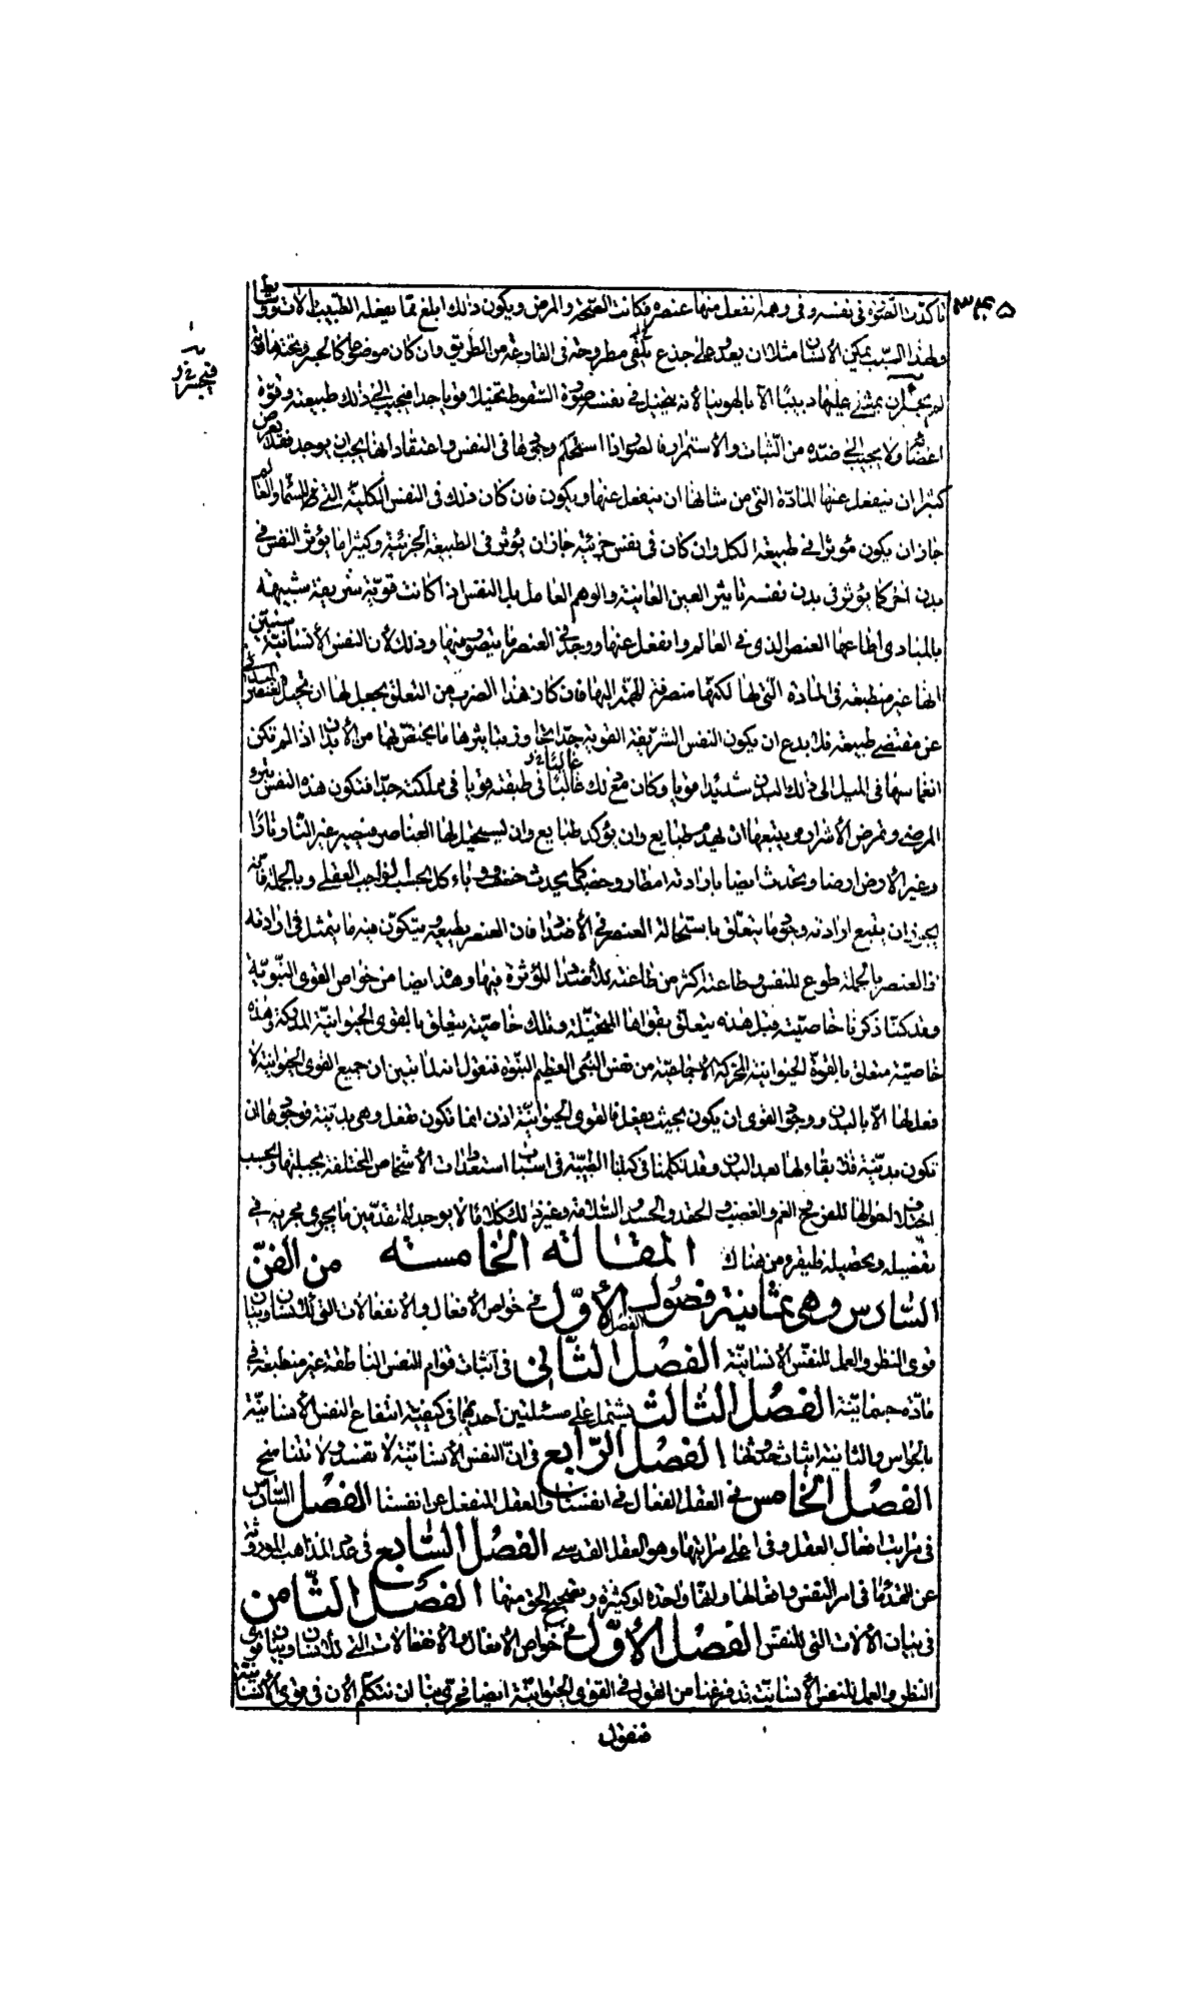 ۳۴۵
تأكدت الصورة فى نفسه و فى وهمه انفعل منها عنصره فكانت الصحة و المرض و يكون ذلك ابلغ مما يفعله الطبيب بالات و وسايط
و لهذا السبب يمكن الانسان مثلا ان يعدو على جذع يلقى مطروحة فى القارعة من الطريق و ان كان موضوعا كالجسر و تحته هاوية
لم يجسر ان يمشى عليها دبيبا الا بالهوينا لانه يتخيل فى نفسه صورة السقوط تخيلا قويا جدا فتجيب الى ذلك طبيعته و قوة
اعضائه و لا يجيب الى ضده من الثبات و الاستمرار فالصور اذا استحكم وجودها فى النفس و اعتقاد انها يجب ان يوجد فقد يعرض
كثيرا ان ينفعل عنها المادة التى من شانها ان ينفعل عنها و يكون فان كان ذلك فى النفس الكلية التى للسماء و العالم
جاز ان يكون مؤثرا فى طبيعة الكل و ان كان فى نفس جزئية جاز ان يؤثر فى الطبيعة الجزئية و كثيرا ما يؤثر النفس فى
بدن اخر كما يؤثر فى بدن نفسه تاثير العين العاينة و الوهم العامل بل النفس اذا كانت قوية شريفة شبيهة
بالمبادى اطاعها العنصر الذى فى العالم و انفعل عنها و وجد فى العنصر ما يتصور منها و ذلك لأن النفس الأنسانية سنبين
انها غير منطبعة فى المادة التى لها لكنها منصرفة الهمة اليها فان كان هذا الضرب من التعلق يجعل لها ان تحيل العنصر البدنى
عن مقتضى طبيعته فلا بدع ان يكون النفس الشريفة القوية جدا تجاوز بتاثيرها ما يختص بها من الأبدان اذا لم تكن
انغماسها فى الميل الى ذلك البدن شديدا قويا و كان مع ذلك غالبا فى طبقته قويا فى مملكته جدا فتكون هذه النفس تبرء
المرضى و تمرض الأشرار و يتبعها ان يهدم طبايع و ان يؤكد طبايع و ان يستحيل لها العناصر فيصير غير النار نارا
و غير الأرض ارضا و يحدث ايضا بارادته امطار و خصب كما يحدث خسف و وباء كل بحسب الواجب العقلى و بالجملة فانه
يجوز ان يتبع ارادته وجود ما يتعلق باستحالة العنصر فى الأضداد فان العنصر يطيعه و يتكون فيه ما يتمثل فى ارادته
اذ العنصر بالجملة طوع للنفس و طاعته اكثر من طاعته للأضداد المؤثرة فيها و هذا ايضا من خواص القوى النبوية
و قد كنا ذكرنا خاصية قبل هذه يتعلق بقواها المتخيلة و تلك خاصية يتعلق بالقوى الحيوانية المدركة و هذه
خاصية متعلق بالقوة الحيوانية المحركة الأجماعية من نفس النبى العظيم النبوة فنقول انه لما تبين ان جميع القوى الحيوانية لا
فعل لها الا بالبدن و وجود القوى ان يكون بحيث يفعل فالقوى الحيوانية اذن انما تكون تفعل و هى بدنية فوجودها ان
تكون بدنية فلا بقاء لها بعد البدن و قد تكلمنا فى كتبنا الطبية فى اسباب استعدادات الأشخاص المختلفة بجبلتها و بحسب
اختلاف احوالها للفرح و الغم و الغضب و الحقد و الحسد و السلامة و غير ذلك كلاما لا يوجد للمتقدمين ما يجرى مجريه فى
تفصيله و تحصيله فليقرء من هناك المقالة الخامسة من الفن
السادس و هى ثمانية فصول الفصل الأول فى خواص الأفعال و الأنفعالات التى للأنسان و بيان
قوى النظر و العمل للنفس الأنسانية الفصل الثانى فى اثبات قوام النفس الناطقة غير منطبعة فى
مادة جسمانية الفصل الثالث يشتمل على مسئلتين احديهما فى كيفية انتفاع النفس الأنسانية
بالحواس و الثانية اثبات حدوثها الفصل الرابع فى ان النفس الأنسانية لا تفسد و لا تتناسخ
الفصل الخامس فى العقل الفعال فى انفسنا و العقل المنفعل عن انفسنا الفصل السادس
فى مراتب افعال العقل و فى اعلى مراتبها و هو العقل القدسى الفصل السابع فى عد المذاهب الموروثة
عن القدماء فى امر النفس و افعالها و انها واحدة او كثيرة و تصحيح الحق منها الفصل الثامن
فى بيان الألات التى للنفس الفصل الأول فى خواص الأفعال و الأنفعالات التى للأنسان و بيان قوى
النظر و العمل للنفس الأنسانية قد فرغنا من القول فى القوى الحيوانية ايضا فحرى بنا ان نتكلم الأن فى قوى الأنسانية
فنقول